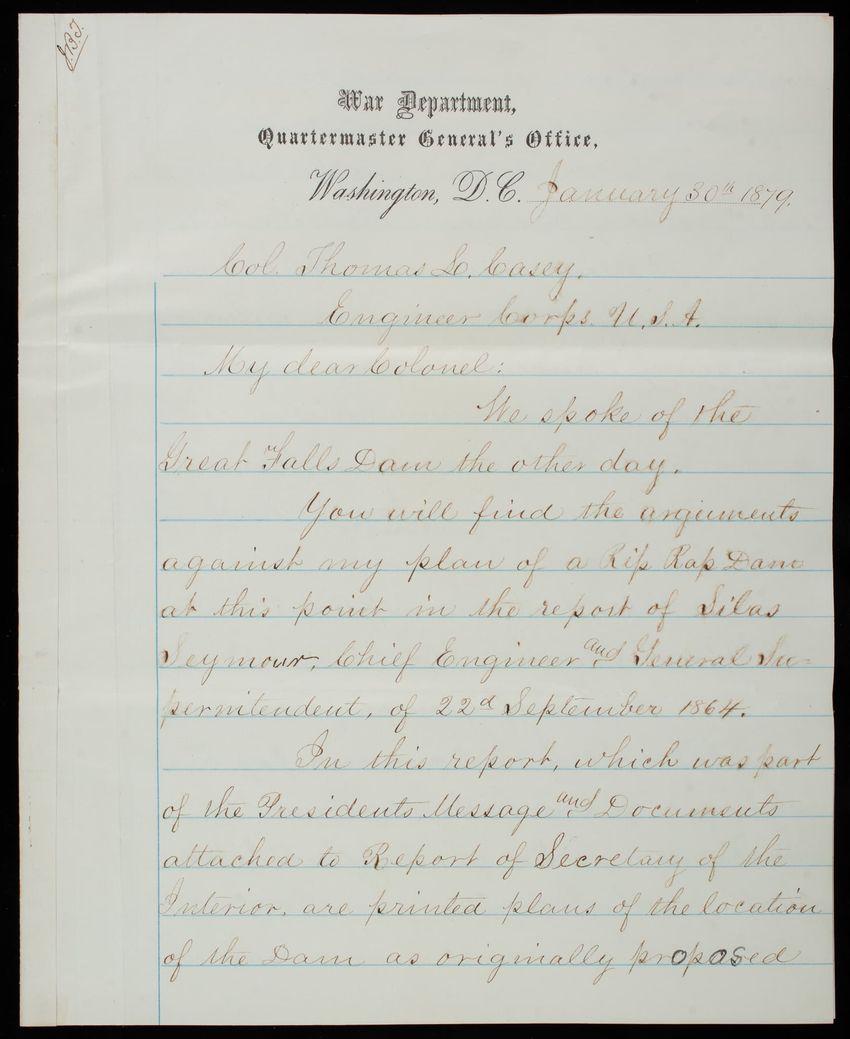 J.B.T.
War Department,
Quartermaster General's Office,
Washington, D.C. January 30th 1879.
Col. Thomas L. Casey.
Engineer Corps. U.S.A.
My dear Colonel:
We spoke of the
Great Falls Dam the other day.
You will find the arguments
against my plan of a Rip Rap Dam
at this point in the report of Silas
Seymour, Chief Engineer and General Su-
perintendent, of 22d September 1864.
In this report, which was part
of the Presidents Message and Documents
attached to Report of Secretary of the
Interior, are printed plans of the location
of the Dam as originally proposed